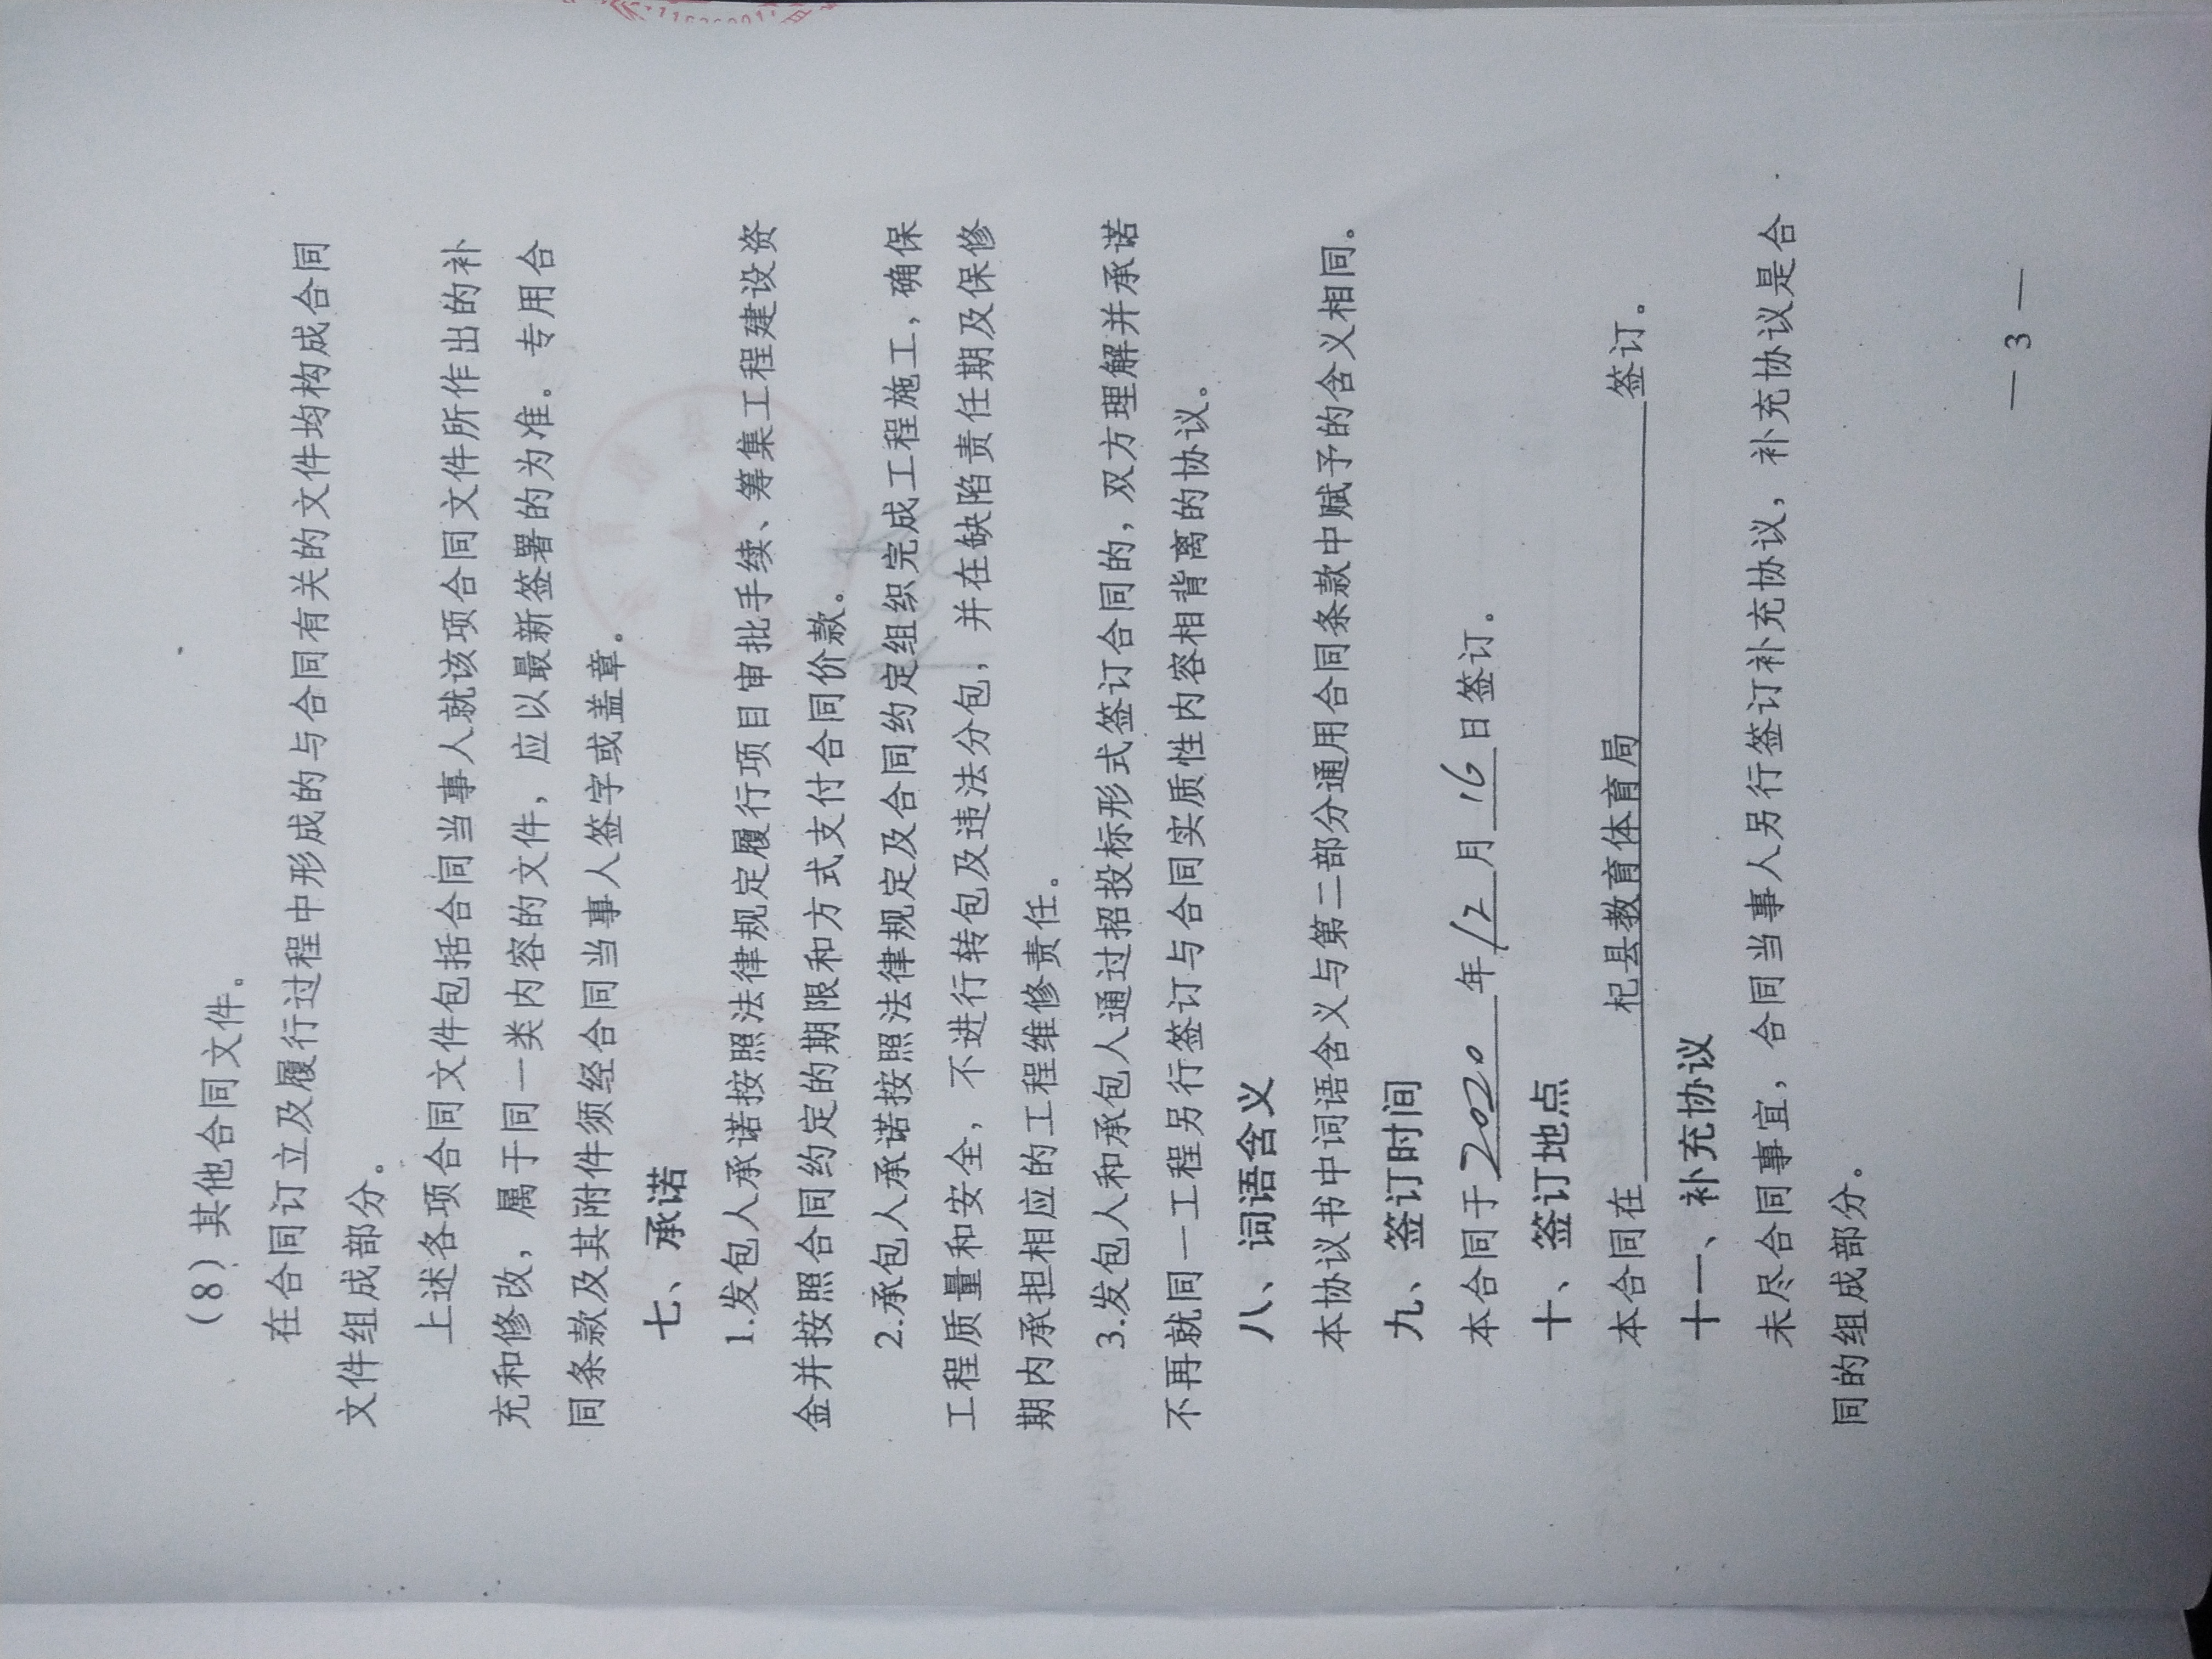 (8) 其他合同文件。
在合同订立及履行过程中形成的与合同有关的文件均构成合同
文件组成部分。
上述各项合同文件包括合同当事人就该项合同文件所作出的补
充和修改，属于同一类内容的文件，应以最新签署的为准。专用合
同条款及其附件须经合同当事人签字或盖章。
七、承诺
1.发包人承诺按照法律规定履行项目审批手续、筹集工程建设资
金并按照合同约定的期限和方式支付合同价款。
2.承包人承诺按照法律规定及合同约定组织完成工程施工，确保
工程质量和安全，不进行转包及违法分包，并在缺陷责任期及保修
期内承担相应的工程维修责任。
3.发包人和承包人通过招投标形式签订合同的，双方理解并承诺
不再就同一工程另行签订与合同实质性内容相背离的协议。
八、词语含义
本协议书中词语含义与第二部分通用合同条款中赋予的含义相同。
九、签订时间
本合同于2020年12月16日签订。
十、签订地点
本合同在 杞县教育体育局 签订。
十一、补充协议
未尽合同事宜，合同当事人另行签订补充协议，补充协议是合
同的组成部分。
— 3 —